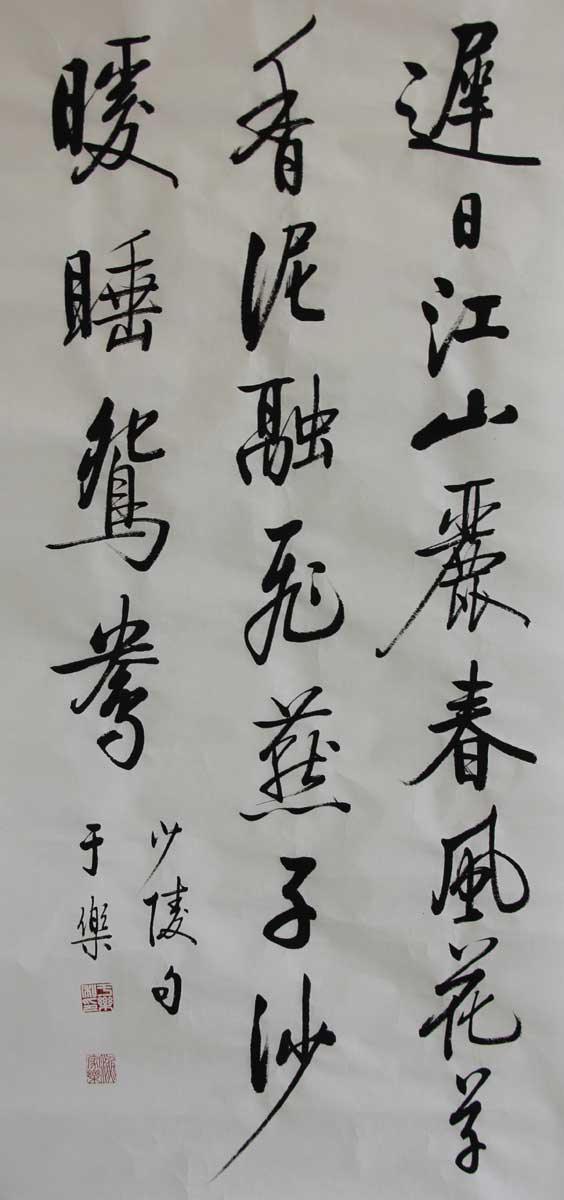 遲日江山麗春風花草
香泥融飛燕子沙
暖睡鴛鴦
少陵句
于樂